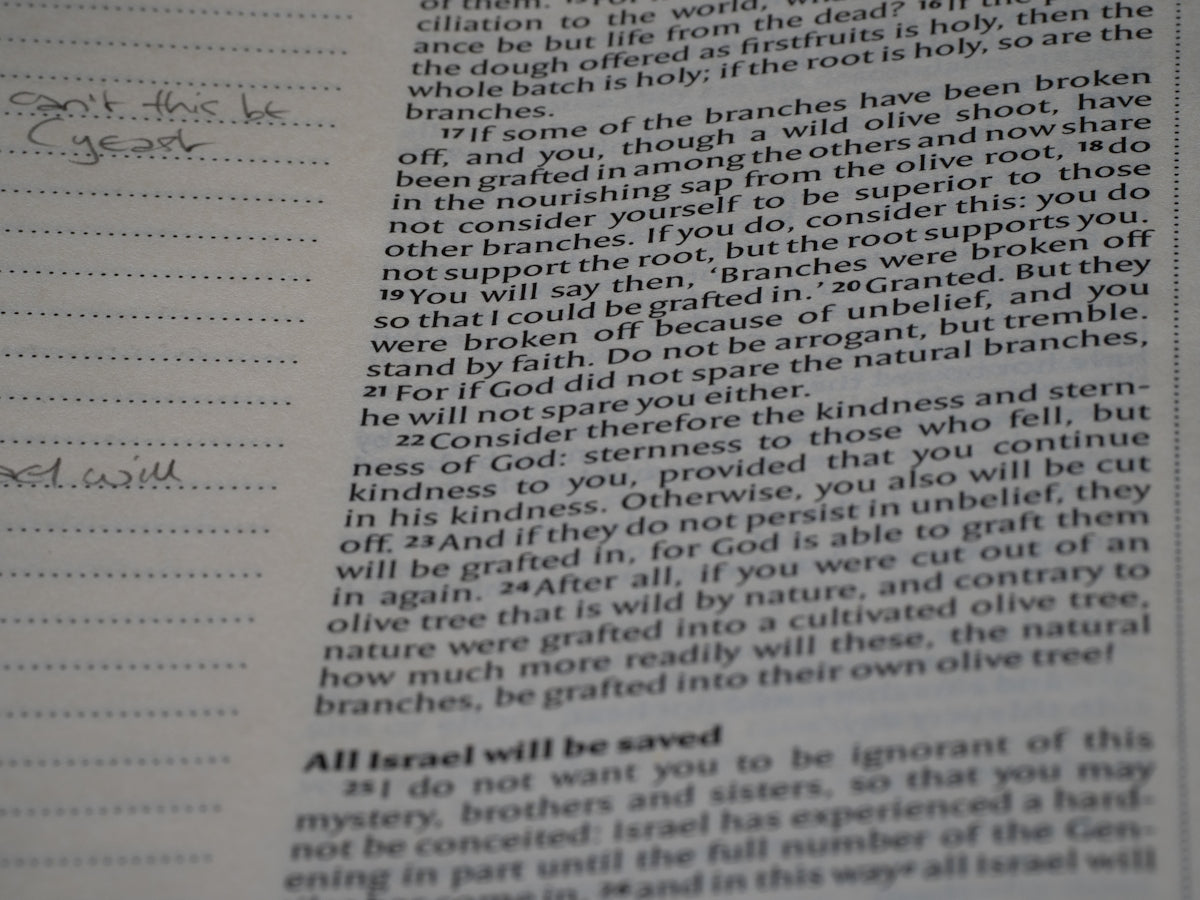 of them.
ciliation to the world,
ance be but life from the dead? 16 If the
the dough offered as firstfruits is holy, then the
whole batch is holy; if the root is holy, so are the
branches.
can't this be
(yeast
17 If some of the branches have been broken
off, and you, though a wild olive shoot, have
been grafted in among the others and now share
in the nourishing sap from the olive root, 18 do
not consider yourself to be superior to those
other branches. If you do, consider this: you do
not support the root, but the root supports you.
19 You will say then, ‘Branches were broken off
so that I could be grafted in.’ 20 Granted. But they
were broken off because of unbelief, and you
stand by faith. Do not be arrogant, but tremble.
21 For if God did not spare the natural branches,
he will not spare you either.
22 Consider therefore the kindness and stern-
ness of God: sternness to those who fell, but
kindness to you, provided that you continue
in his kindness. Otherwise, you also will be cut
off. 23 And if they do not persist in unbelief, they
will be grafted in, for God is able to graft them
in again. 24 After all, if you were cut out of an
olive tree that is wild by nature, and contrary to
nature were grafted into a cultivated olive tree,
how much more readily will these, the natural
branches, be grafted into their own olive tree!
will
All Israel will be saved
25 I do not want you to be ignorant of this
mystery, brothers and sisters, so that you may
not be conceited: Israel has experienced a hard-
ening in part until the full number of the Gen-
come in, 26 and in this way all Israel will